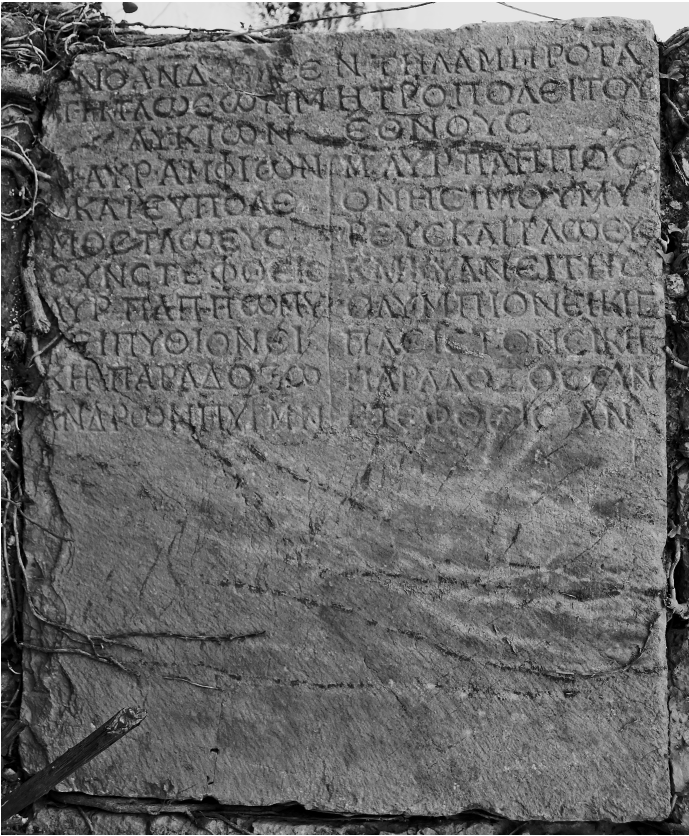 ΕΝ ΤΗ ΛΑΜΠΡΟΤΑ
ΤΗ ΤΛΩΕΩΝ ΜΗΤΡΟΠΟΛΕΙ ΤΟΥ
ΛΥΚΙΩΝ ΕΘΝΟΥϹ
ΑΥΡ ΑΜΦΙΩΝ
ΚΑΙ ΕΥΠΟΛΕ
ΜΟϹ ΤΛΩΕΥϹ
ϹΥΝϹΤΕΦΘΕΙϹ
ΑΥΡ ΠΑΠΠΩ ΜΥ
ΠΥΘΙΟΝΕΙ
ΚΗ ΠΑΡΑΔΟΞΩ
ΑΝΔΡΩΝ ΠΥΓΜΝ
Μ ΑΥΡ ΠΑΠΠΟϹ
ΟΝΗϹΙΜΟΥ ΜΥ
ΡΕΥϹ ΚΑΙ ΤΛΩΕΥϹ
ΟΛΥΜΠΙΟΝΕΙΚΗϹ
ΠΛΕΙϹΤΟΝΕΙΚΗϹ
ΠΑΡΑΔΟΞΟϹ ϹΥΝ
ϹΤΕΦΘΕΙϹ ΑΝ